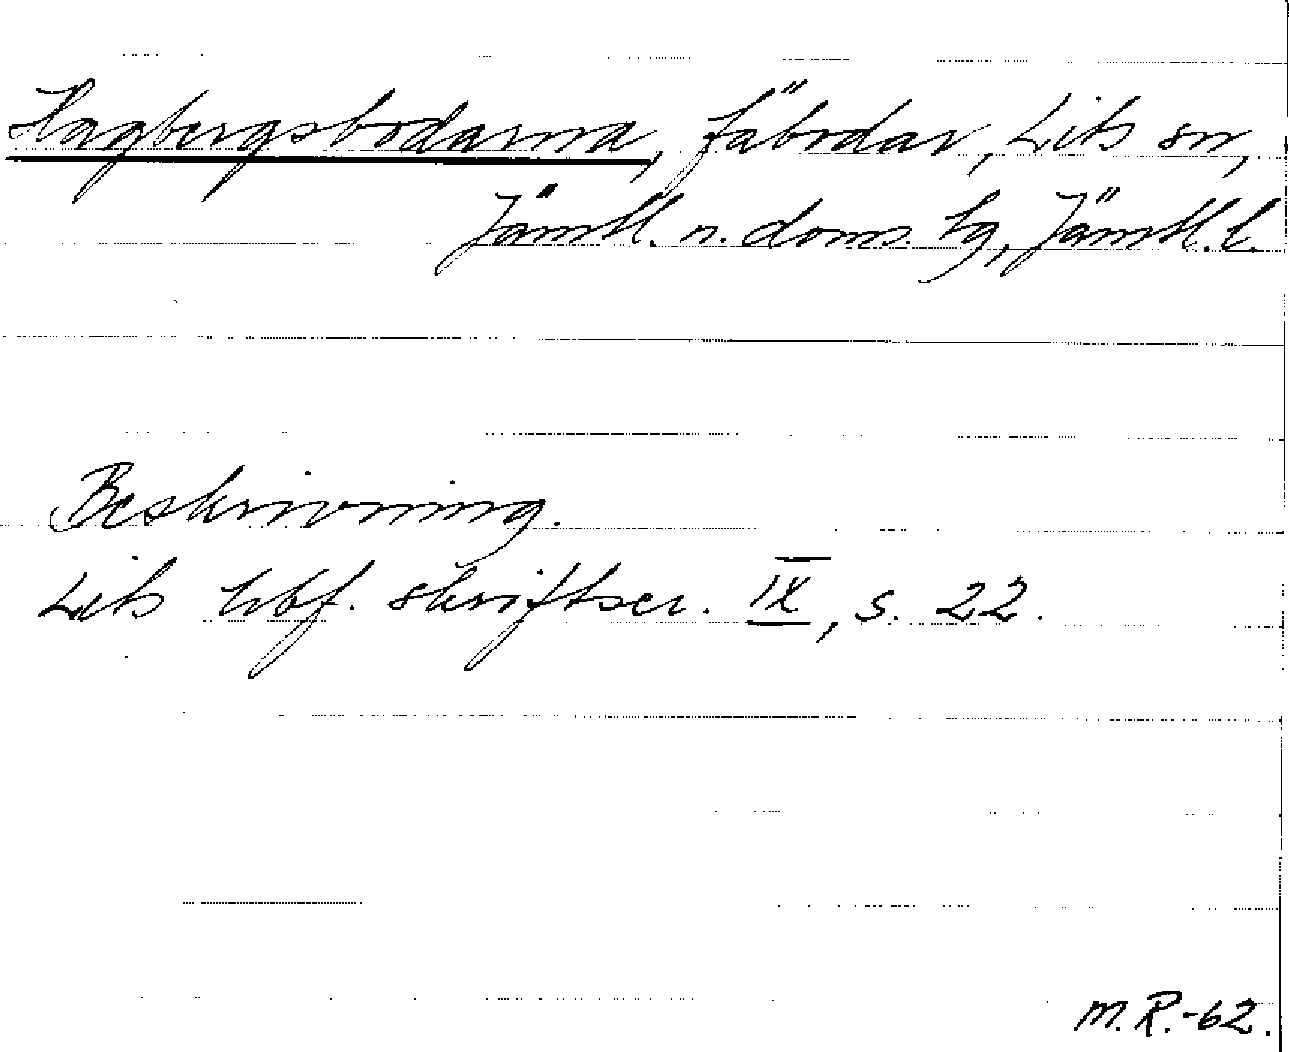 Hagbergsbodarna, fäbodar, Lits sn,
Jämtl. n. doms. tg, Jämtl. l.
Beskrivning.
Lits hbf. skriftser. IX, s. 22.
M.R.-62.